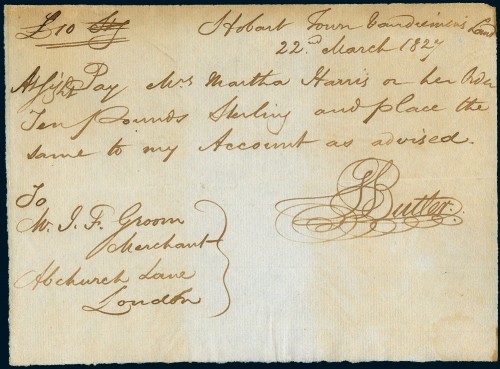 £10 Stg Hobart Town Vandiemen's Land
22nd March 1827
At sight Pay Mrs Martha Harris or her Order
Ten pounds Sterling and place the
same to my Account as advised.
To
Mr. J. F. Groom
Merchant
Abchurch Lane
London
Butler.